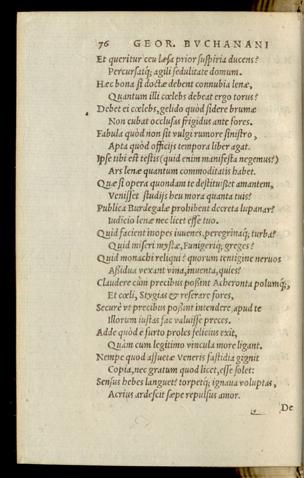 76 GEOR. BVCHANANI
Et queritur ceu læsa prior suspiria ducens?
Percursatq; agili sedulitate domum.
Hæc bona si doctæ debent connubia lenæ,
Quantum illi cœlebs debeat ergo torus?
Debet ei cœlebs, gelido quòd sidere brumæ
Non cubat occlusas frigidus ante fores.
Fabula quòd non sit vulgi rumore sinistro,
Apta quòd officijs tempora liber agat.
Ipse tibi est testis (quid enim manifesta negemus?)
Ars lenæ quantum commoditatis habet.
Quæ si opera quondam te destituisset amantem,
Venisset studijs heu mora quanta tuis?
Publica Burdegalæ prohibent decreta lupanar?
Iudicio lenæ nec licet esse tuo.
Quid facient inopes iuuenes, peregrinaq; turba?
Quid miseri mystæ, Funigeriq; greges?
Quid monachi reliqui? quorum tentigine neruos
Assidua vexant vina, inuenta, quies?
Claudere cùm precibus possint Acheronta polumq;,
Et cœli, Stygias & reserare fores,
Securè vt precibus possint intendere, apud te
Illorum iustas fac valuisse preces.
Adde quòd è furto proles felicius exit,
Quàm cum legitimo vincula more ligant.
Nempe quod assuetæ Veneris fastidia gignit
Copia, nec gratum quod licet, esse solet:
Sensus hebes languet: torpetq; ignaua voluptas,
Acrius ardescit sæpe repulsus amor.
De